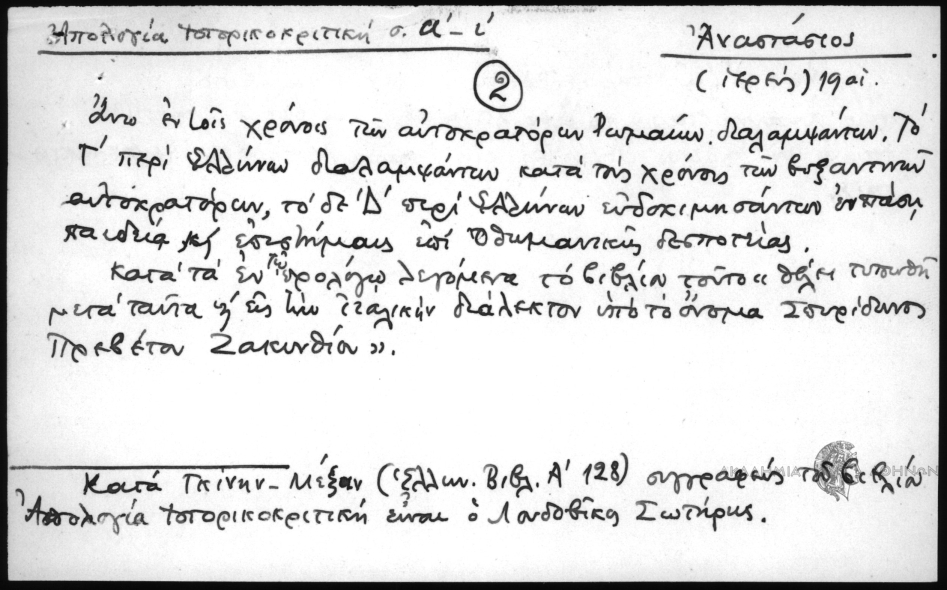 Ἀπολογία ἱστορικοκριτική σ. α´-ι´
Ἀναστάσιος
(ἱερεύς) 19 αἰ.
2
ἄνω ἐν τοῖς χρόνοις τῶν αὐτοκρατόρων Ρωμαίων διαλαμψάντων. Τό
Γ´ περί Ἑλλήνων διαλαμψάντων κατά τούς χρόνους τῶν βυζαντινῶν
αὐτοκρατόρων, τό δέ Δ´ περί Ἑλλήνων εὐδοκιμησάντων ἐν πάσῃ
παιδείᾳ καί ἐπιστήμαις ἐπί Ὀθωμανικῆς δεσποτείας.
Κατά τά ἐν τῷ προλόγῳ λεγόμενα τό βιβλίον τοῦτο «θέλει τυπωθῆ
μετά ταῦτα καί εἰς τήν ἰταλικήν διάλεκτον ὑπό τό ὄνομα Σπυρίδωνος
Πρεβέτου Ζακυνθίου».
Κατά Γκίνην-Μέξαν (Ἑλλην. Βιβλ. Α´ 128) συγγραφεύς τοῦ βιβλίου
Ἀπολογία ἱστορικοκριτική εἶναι ὁ Λουδοβῖκος Σωτήρης.
ΑΚΑΔΗΜΙΑ ΑΘΗΝΩΝ